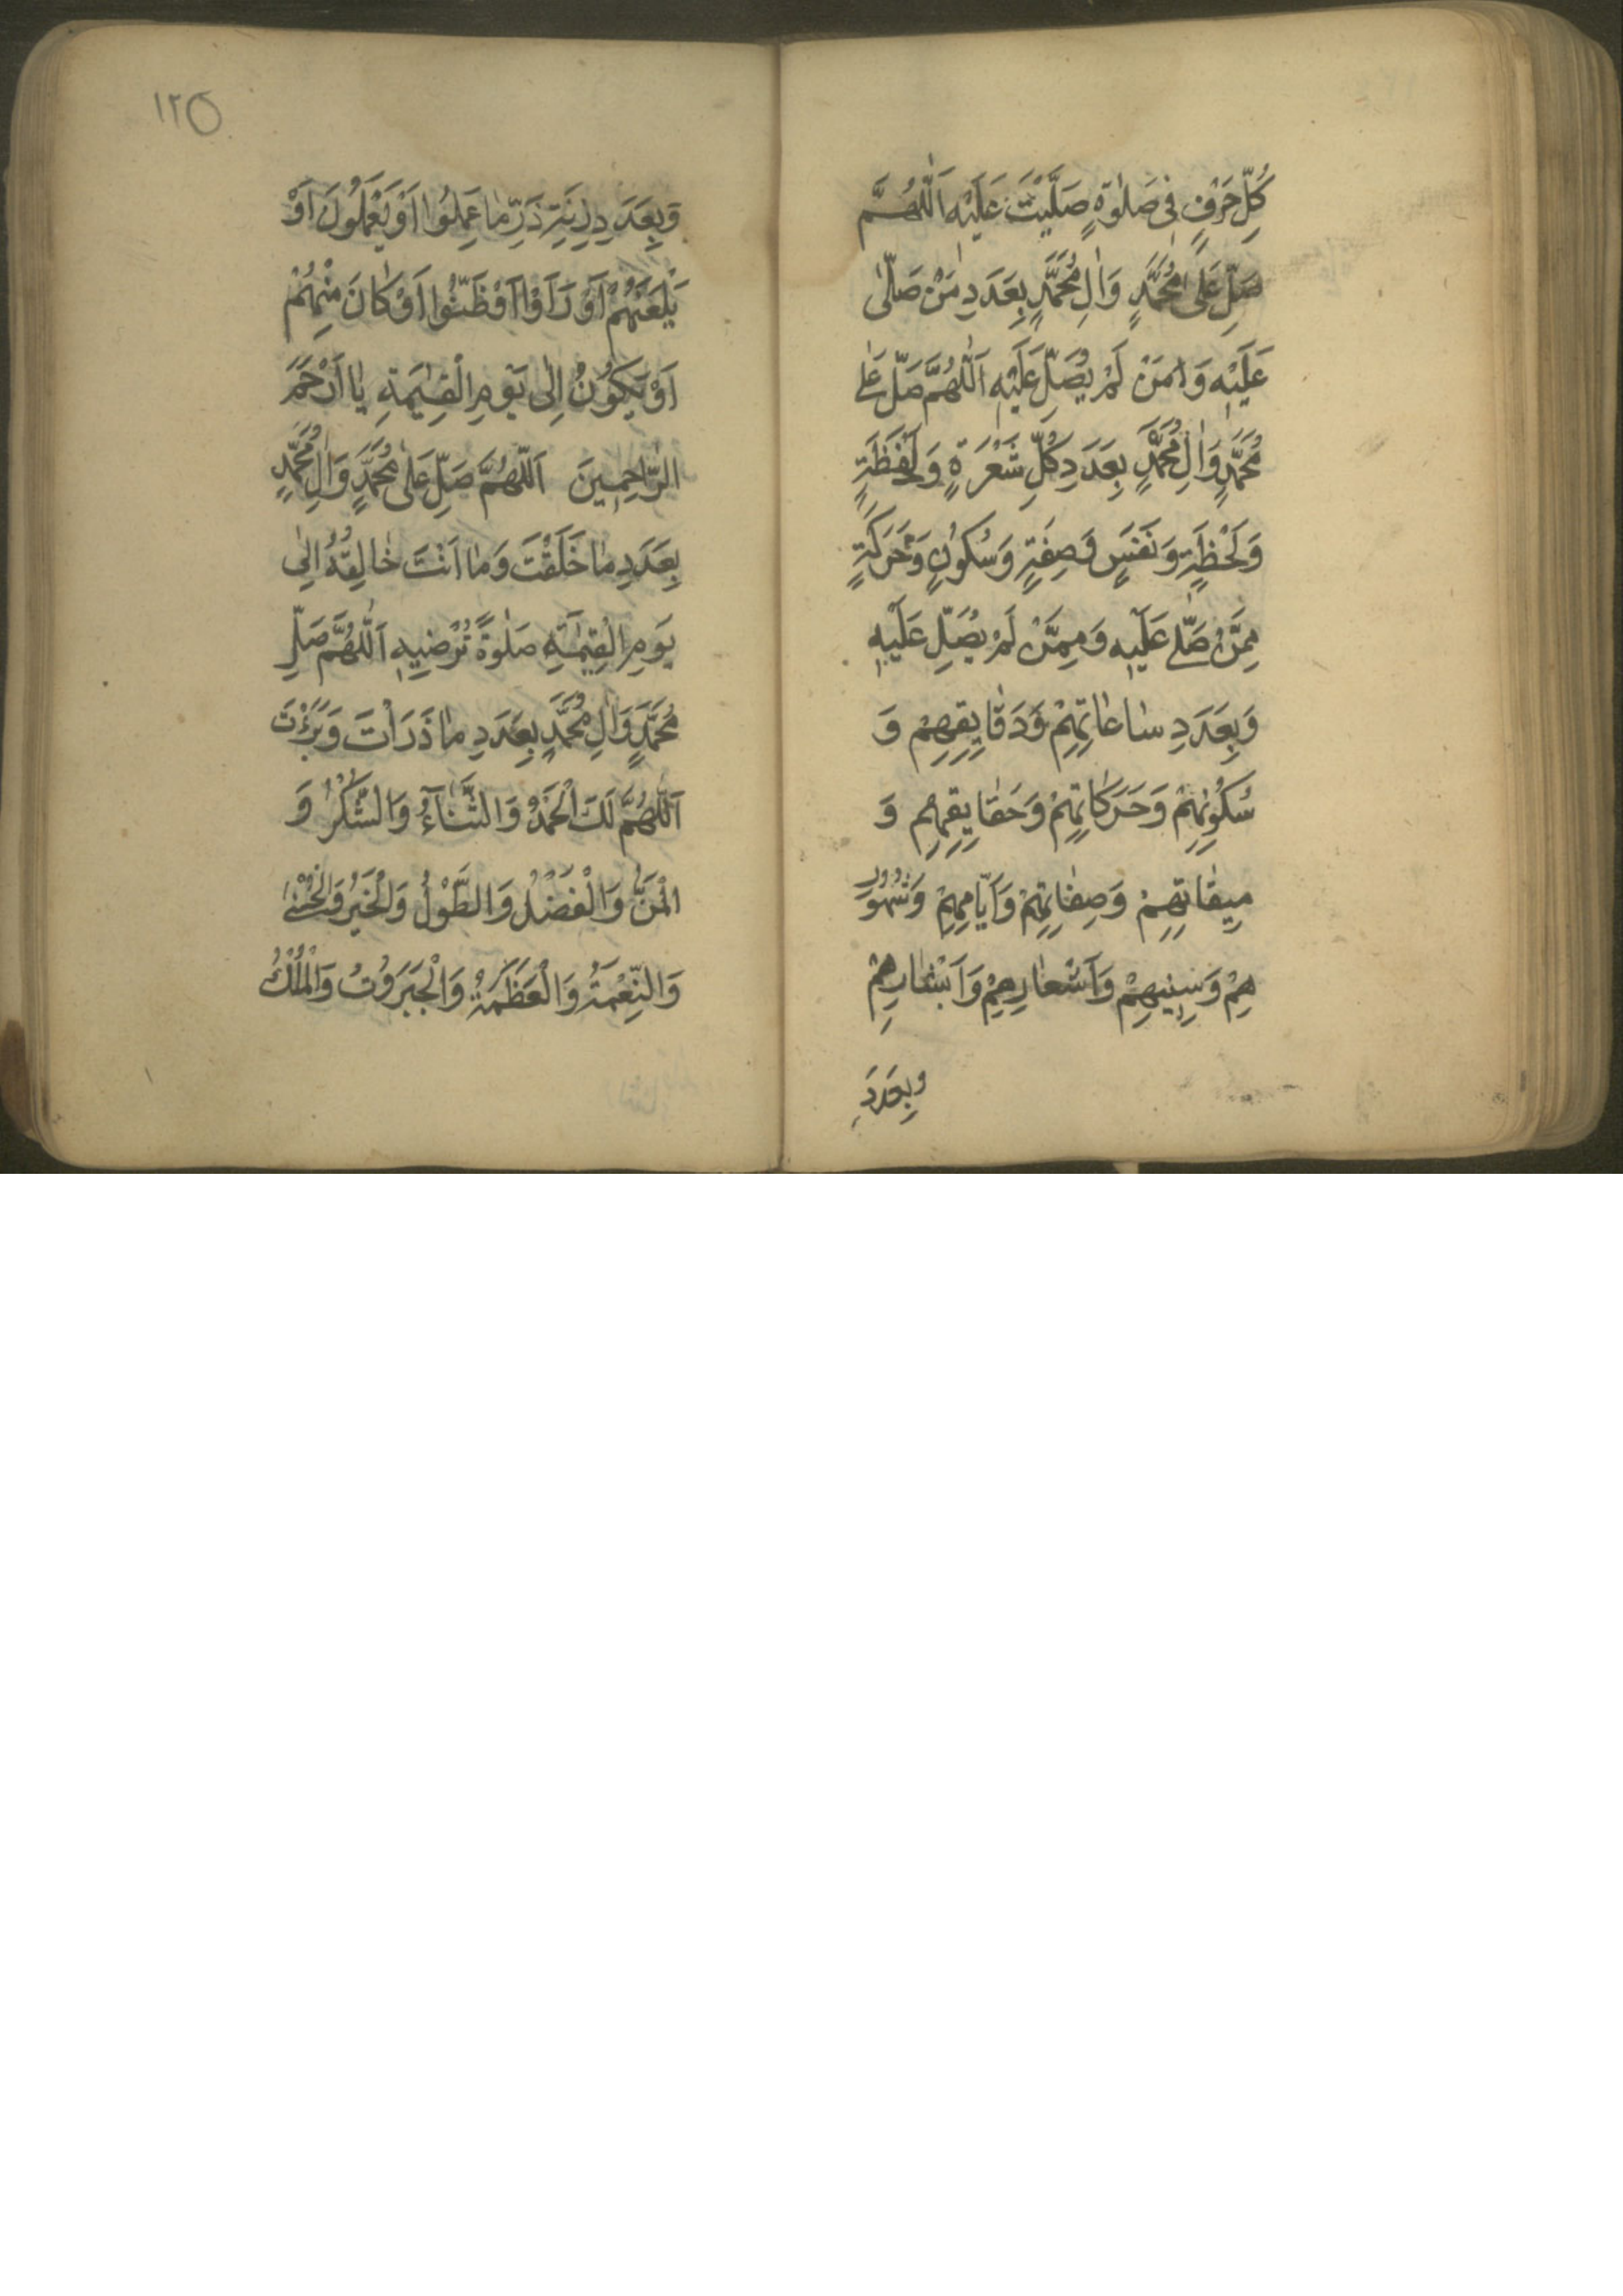 كُلِّ حَرْفٍ فِي صَلٰوةٍ صَلَّيْتَ عَلَيْهِ اَللّٰهُمَّ
صَلِّ عَلٰى مُحَمَّدٍ وَاٰلِ مُحَمَّدٍ بِعَدَدِ مَنْ صَلّٰى
عَلَيْهِ وَمَنْ لَمْ يُصَلِّ عَلَيْهِ اَللّٰهُمَّ صَلِّ عَلٰى
مُحَمَّدٍ وَاٰلِ مُحَمَّدٍ بِعَدَدِ كُلِّ شَعْرَةٍ وَلَفْظَةٍ
وَلَحْظَةٍ وَنَفَسٍ وَصِفَةٍ وَسُكُونٍ وَحَرَكَةٍ
مِمَّنْ صَلّٰى عَلَيْهِ وَمِمَّنْ لَمْ يُصَلِّ عَلَيْهِ
وَبِعَدَدِ سٰاعٰاتِهِمْ وَدَقٰايِقِهِمْ وَ
سُكُونِهِمْ وَحَرَكٰاتِهِمْ وَحَقٰايِقِهِمْ وَ
مِيقٰاتِهِمْ وَصِفٰاتِهِمْ وَاَيّٰامِهِمْ وَشُهُورِ
هِمْ وَسِنِيهِمْ وَاَشْعٰارِهِمْ وَاَبْشٰارِهِمْ
وبِعَدَدِ
١٢٥
وَبِعَدَدِ زِنَةِ ذَرِّ مٰا عَمِلُوا اَوْ يَعْمَلُونَ اَوْ
بَلَغَهُمْ اَوْ رَاَوْا اَوْ ظَنُّوا اَوْ كٰانَ مِنْهُمْ
اَوْ يَكُونُ اِلٰى يَوْمِ الْقِيٰمَةِ يٰا اَرْحَمَ
الرّٰاحِمِينَ اَللّٰهُمَّ صَلِّ عَلٰى مُحَمَّدٍ وَاٰلِ مُحَمَّدٍ
بِعَدَدِ مٰا خَلَقْتَ وَمٰا اَنْتَ خٰالِقُهُ اِلٰى
يَوْمِ الْقِيٰمَةِ صَلٰوةً تُرْضِيهِ اَللّٰهُمَّ صَلِّ
مُحَمَّدٍ وَاٰلِ مُحَمَّدٍ بِعَدَدِ مٰا ذَرَاْتَ وَبَرَئْتَ
اَللّٰهُمَّ لَكَ الْحَمْدُ وَالثَّنٰآءُ وَالشُّكْرُ وَ
الْمَنُّ وَالْفَضْلُ وَالطَّوْلُ وَالْخَيْرُ وَالْحُسْنٰى
وَالنِّعْمَةُ وَالْعَظَمَةُ وَالْجَبَرُوتُ وَالْمُلْكُ